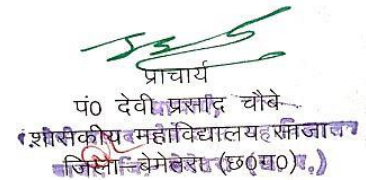 प्राचार्य
पं० देवी प्रसाद चौबे
शासकीय महाविद्यालय साजा
जिला बेमेतरा (छ०ग०)